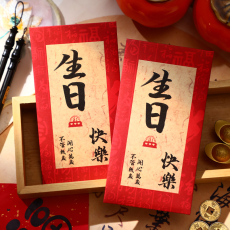 生日
快樂
不管幾歲
開心萬歲
生日
快樂
不管幾歲
開心萬歲